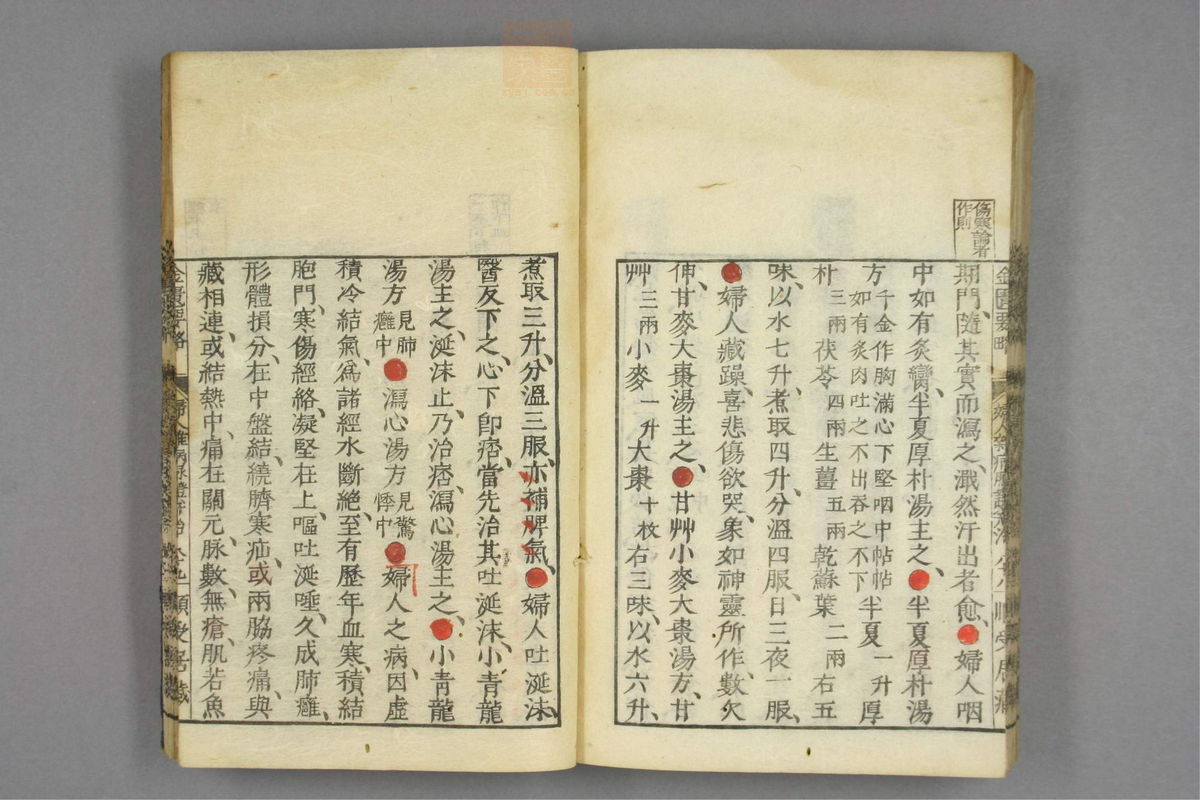 傷寒論者
作則
期門、隨其實而瀉之、濈然汗出者愈、●婦人咽
中如有炙臠、半夏厚朴湯主之、●半夏厚朴湯
方千金作胸滿心下堅咽中帖帖
如有炙肉吐之不出吞之不下半夏一升厚
朴三兩茯苓四兩生薑五兩乾蘇葉二兩右五
味、以水七升、煮取四升、分溫四服、日三夜一服、
●婦人藏躁、喜悲傷欲哭、象如神靈所作、數欠
伸、甘麥大棗湯主之、●甘艸小麥大棗湯方、甘
艸三兩小麥一升大棗十枚右三味、以水六升、
煮取三升、分溫三服、亦補脾氣、●婦人吐涎沫、
醫反下之、心下卽痞、當先治其吐涎沫、小青龍
湯主之、涎沫止、乃治痞、瀉心湯主之、●小青龍
湯方見肺
癰中●瀉心湯方見驚
悸中●婦人之病、因虛
積冷結氣、爲諸經水斷絕、至有歷年、血寒、積結
胞門、寒傷經絡、凝堅在上、嘔吐涎唾、久成肺癰、
形體損分、在中盤結、繞臍寒疝、或兩脇疼痛、與
藏相連、或結熱中、痛在關元、脉數、無瘡、肌若魚
金匱要略